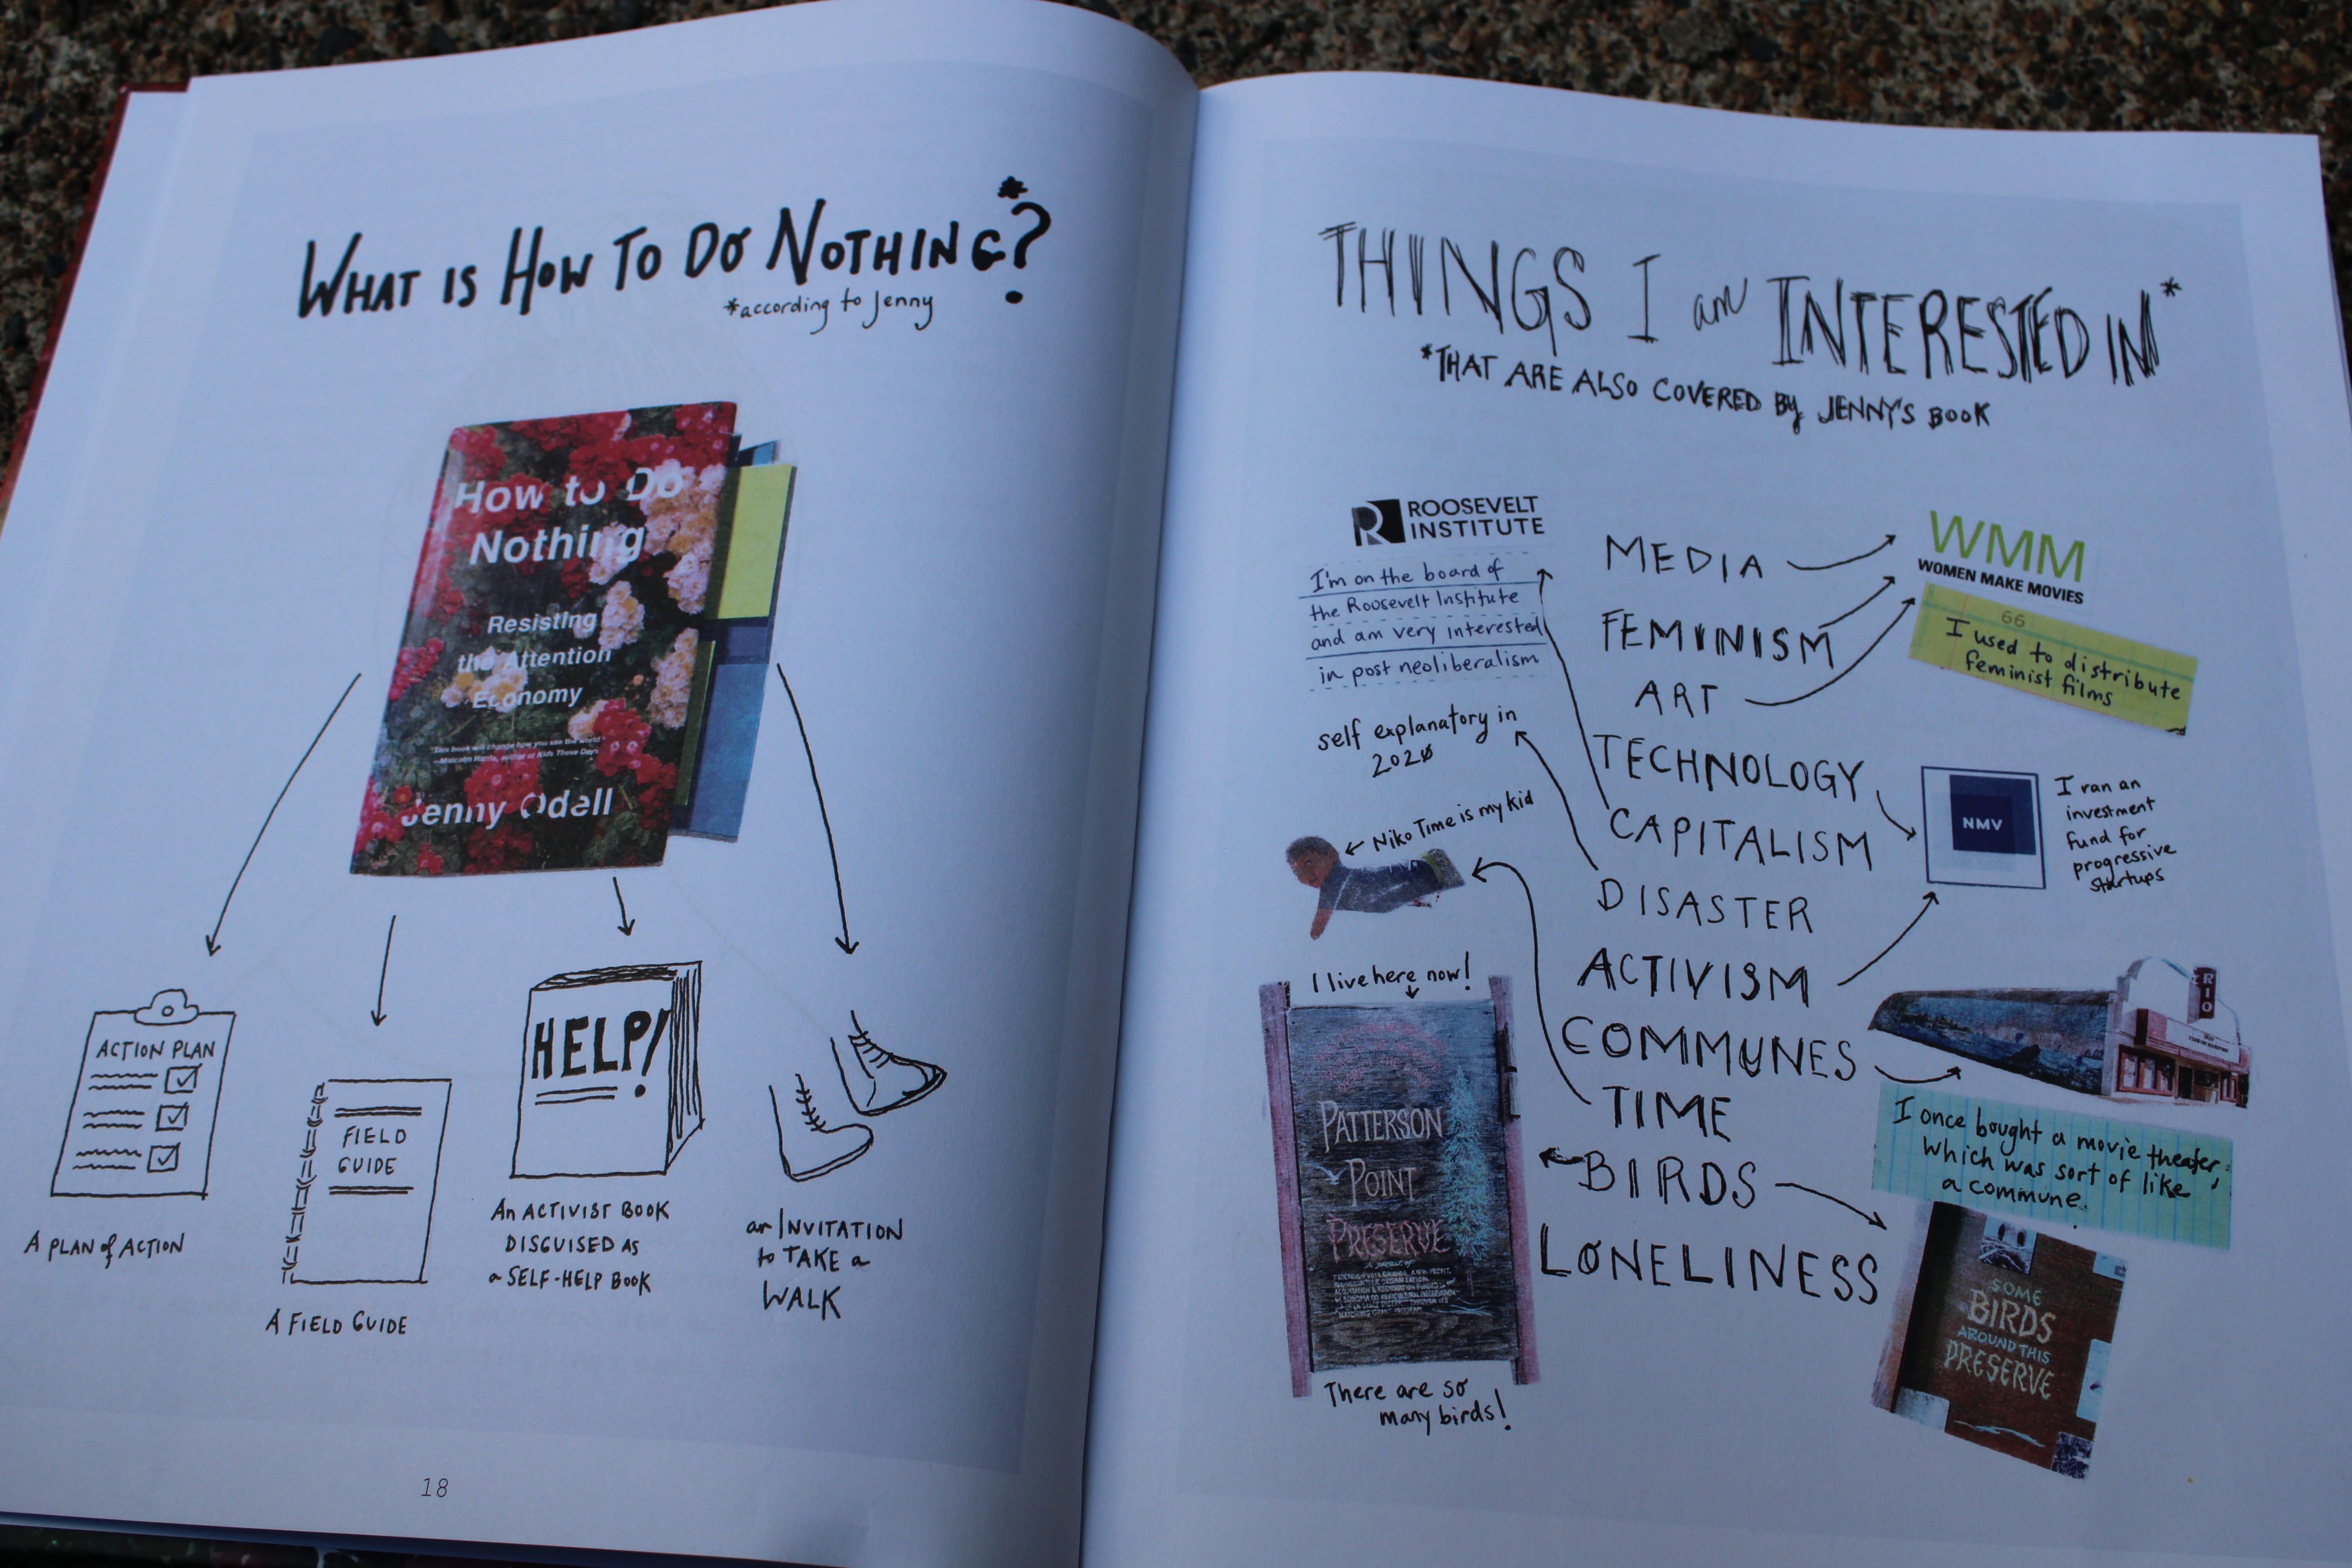 WHAT IS HOW TO DO NOTHING*?
*according to Jenny
How to Do
Nothing
Resisting
the Attention
Economy
"This book will change how you see the world."
—Malcolm Harris, author of Kids These Days
Jenny Odell
ACTION PLAN
A PLAN of ACTION
FIELD
GUIDE
A FIELD GUIDE
HELP!
An ACTIVIST BOOK
DISGUISED AS
a SELF-HELP BOOK
an INVITATION
to TAKE a
WALK
18
THINGS I am INTERESTED IN*
*THAT ARE ALSO COVERED BY JENNY'S BOOK
R ROOSEVELT
INSTITUTE
I'm on the board of
the Roosevelt Institute
and am very interested
in post neoliberalism
self explanatory in
2020
Niko Time is my kid
I live here now!
PATTERSON
POINT
PRESERVE
There are so
many birds!
MEDIA
FEMINISM
ART
TECHNOLOGY
CAPITALISM
DISASTER
ACTIVISM
COMMUNES
TIME
BIRDS
LONELINESS
WMM
WOMEN MAKE MOVIES
66
I used to distribute
feminist films
NMV
I ran an
investment
fund for
progressive
startups
RIO
I once bought a movie theater,
which was sort of like
a commune.
SOME
BIRDS
AROUND THIS
PRESERVE